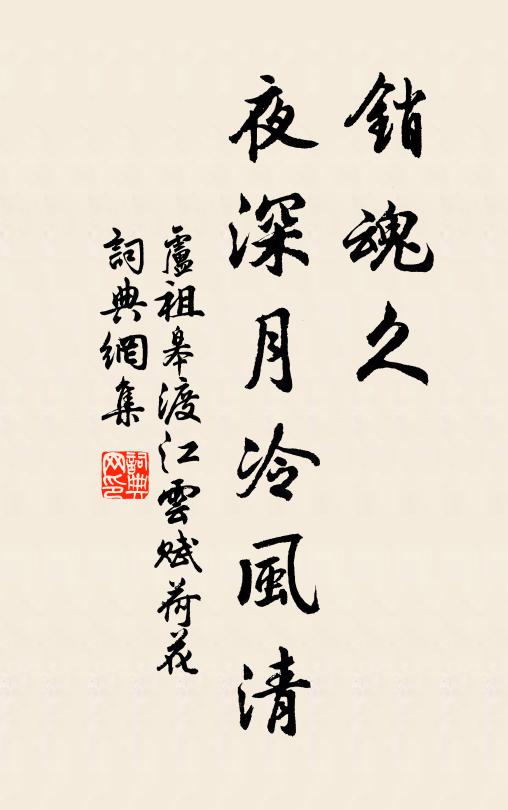 銷魂久
夜深月冷風清
盧祖皋渡江雲賦荷花
詞典網集
詞典网印